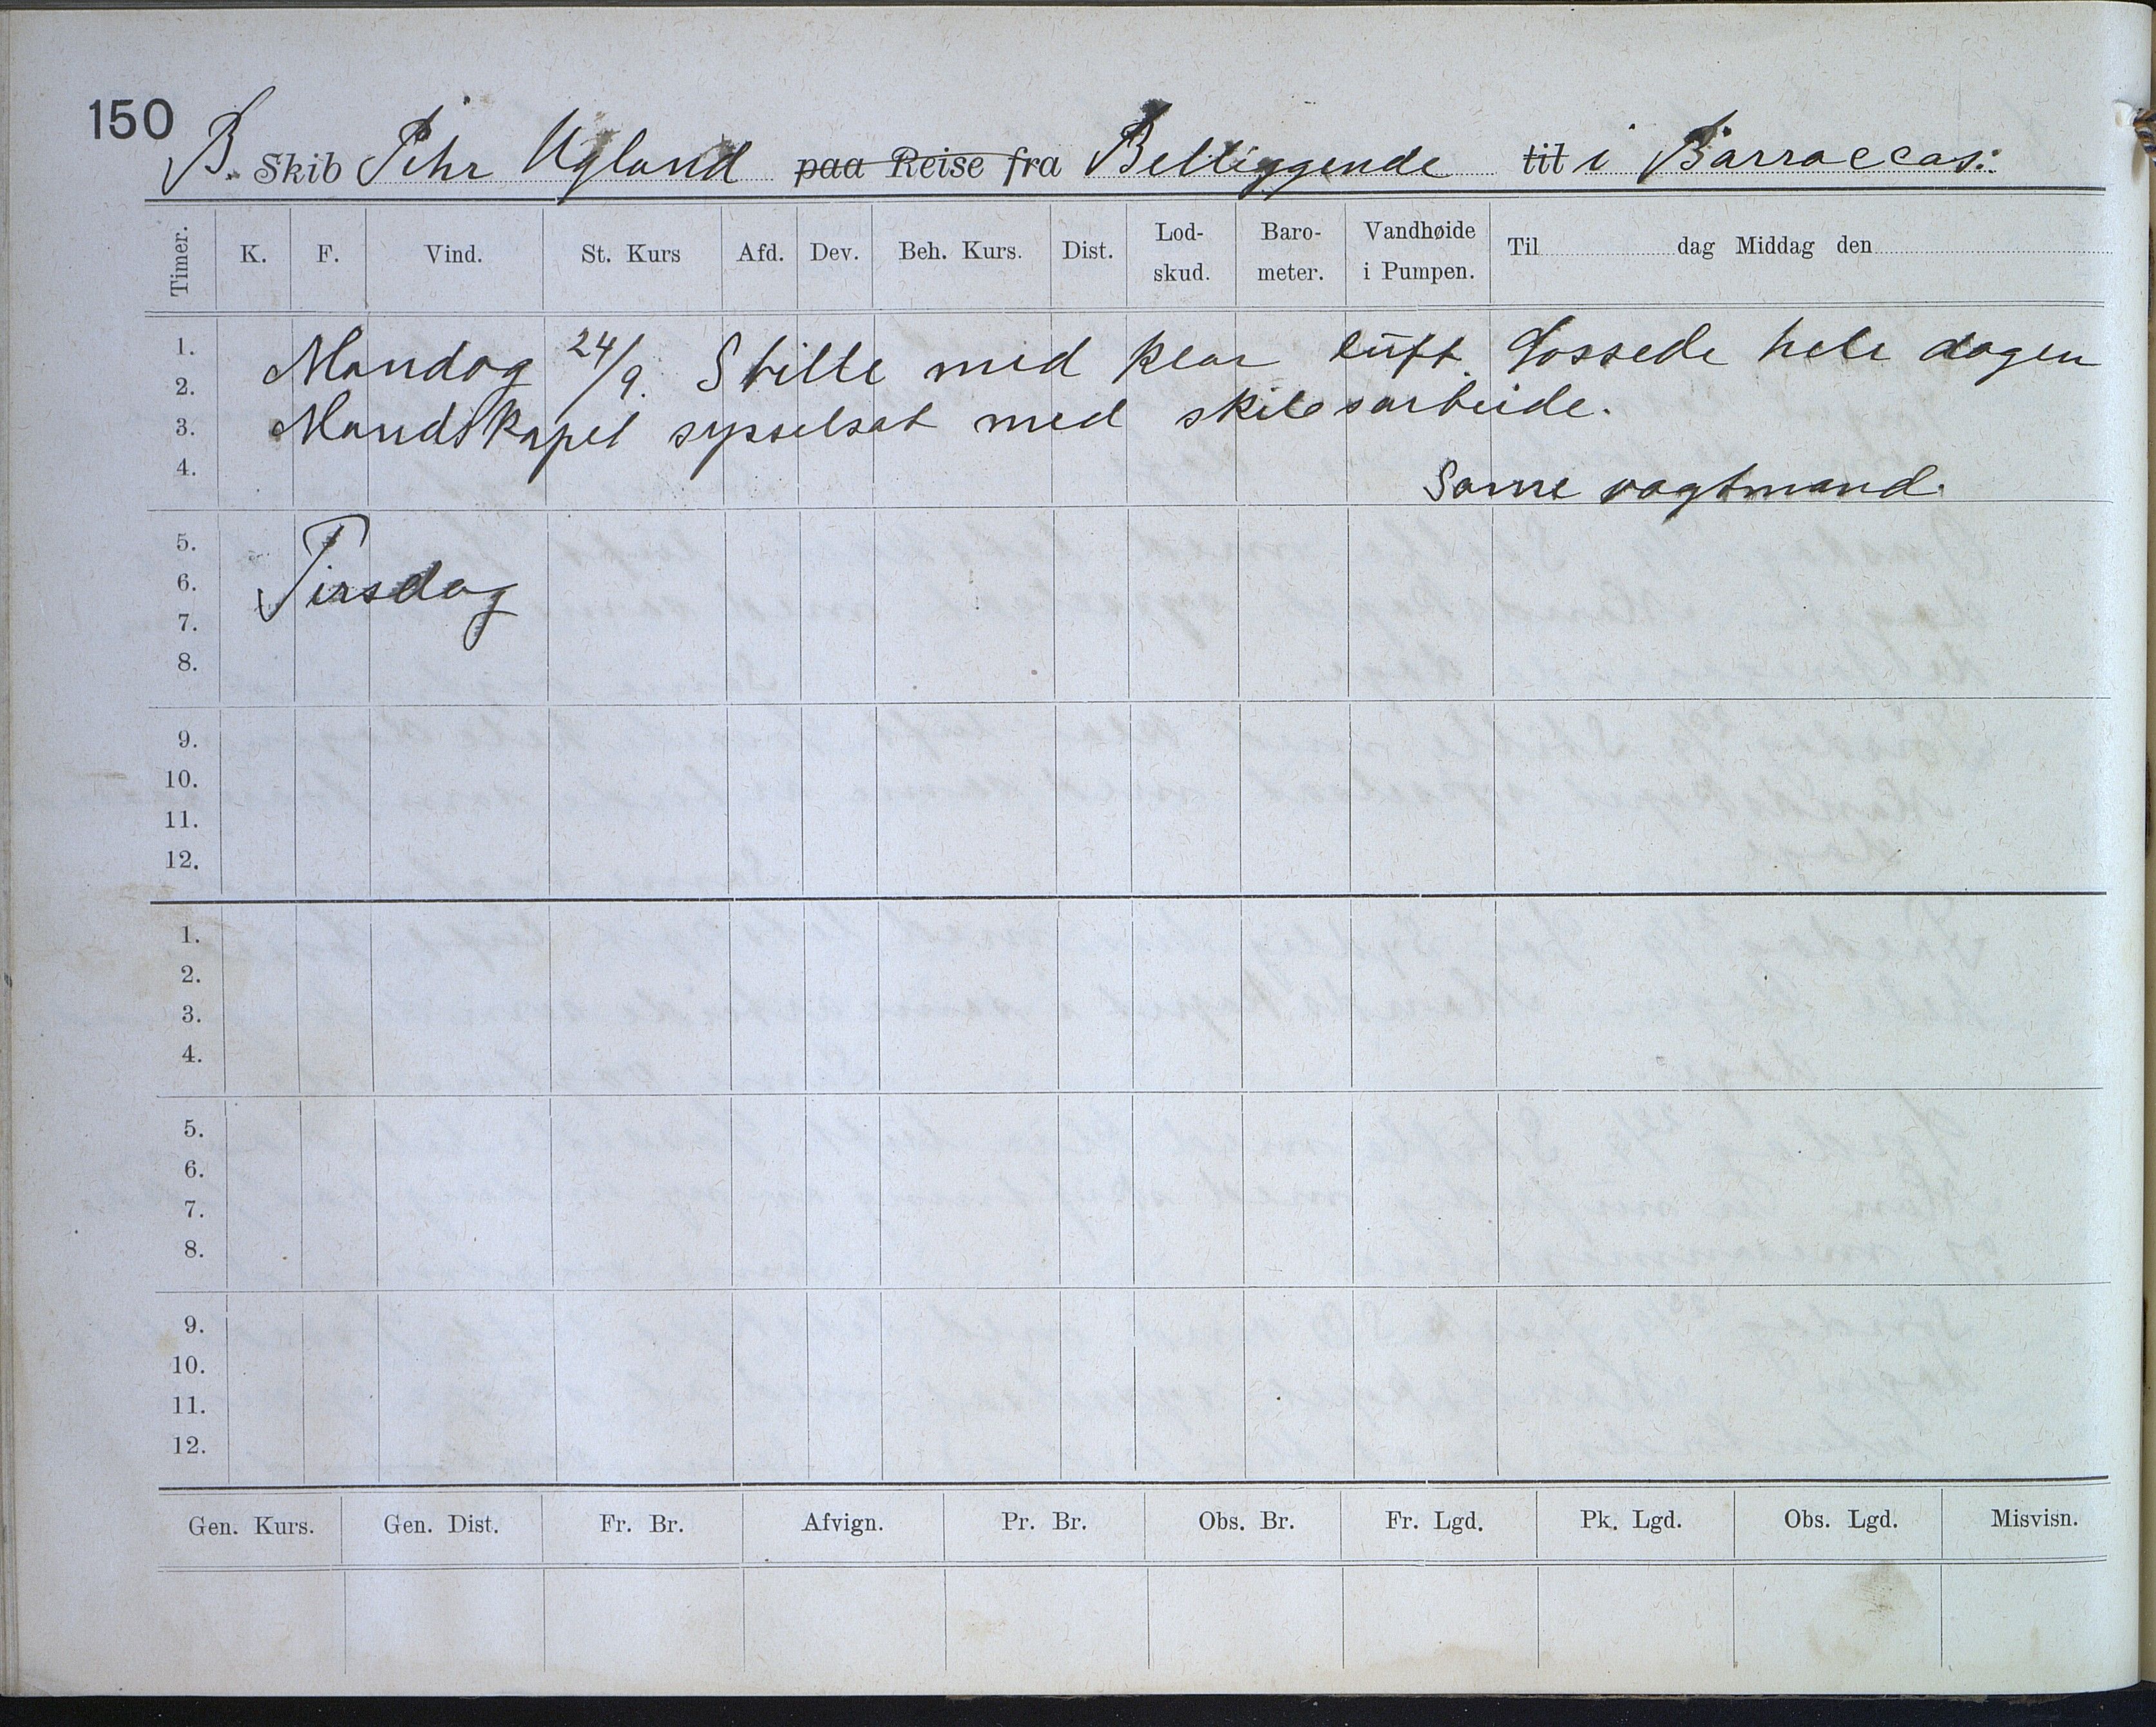 150
B. Skib Pehr Ugland paa Reise fra Belliggende til i Barraccas.
Timer. K. F. Vind. St. Kurs Afd. Dev. Beh. Kurs. Dist. Lod-skud. Baro-meter. Vandhøide i Pumpen. Til dag Middag den
1.
2.
3.
4.
Mandag 24/9. Stille med klar luft. Lossede hele dagen
Mandskapet sysselsat med skibsarbeide.
Samme vagtmand.
5.
6.
7.
8.
Tirsdag
9.
10.
11.
12.
1.
2.
3.
4.
5.
6.
7.
8.
9.
10.
11.
12.
Gen. Kurs. Gen. Dist. Fr. Br. Afvign. Pr. Br. Obs. Br. Fr. Lgd. Pk. Lgd. Obs. Lgd. Misvisn.